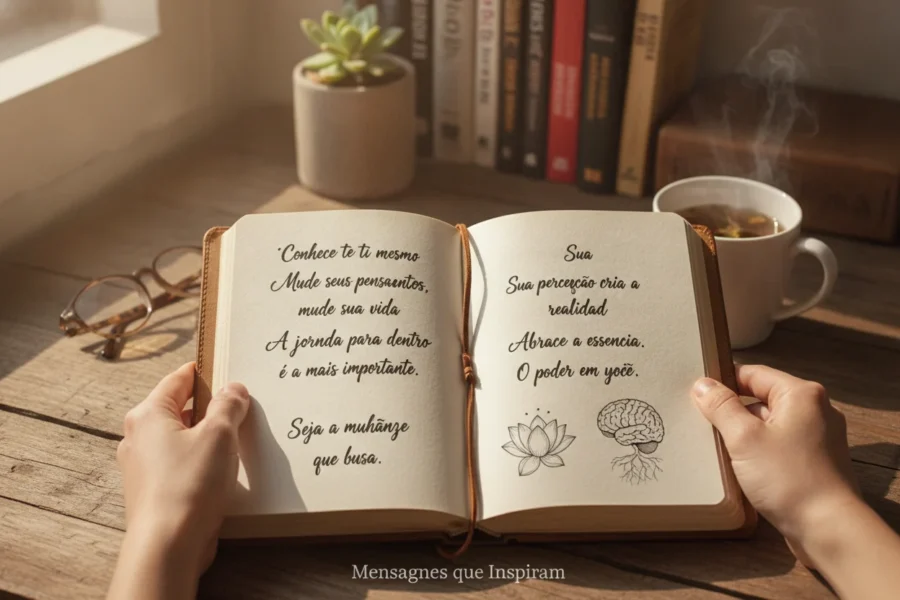 "Conhece te ti mesmo
Mude seus pensaɛntos,
mude sua vida
A jornda para dentro
é a mais importante.
Seja a muhãnze
que busa.
Sua
Sua percepção cria a
realidad
Abrace a essencia.
O poder em yocê.
Mensagnes que Inspiram